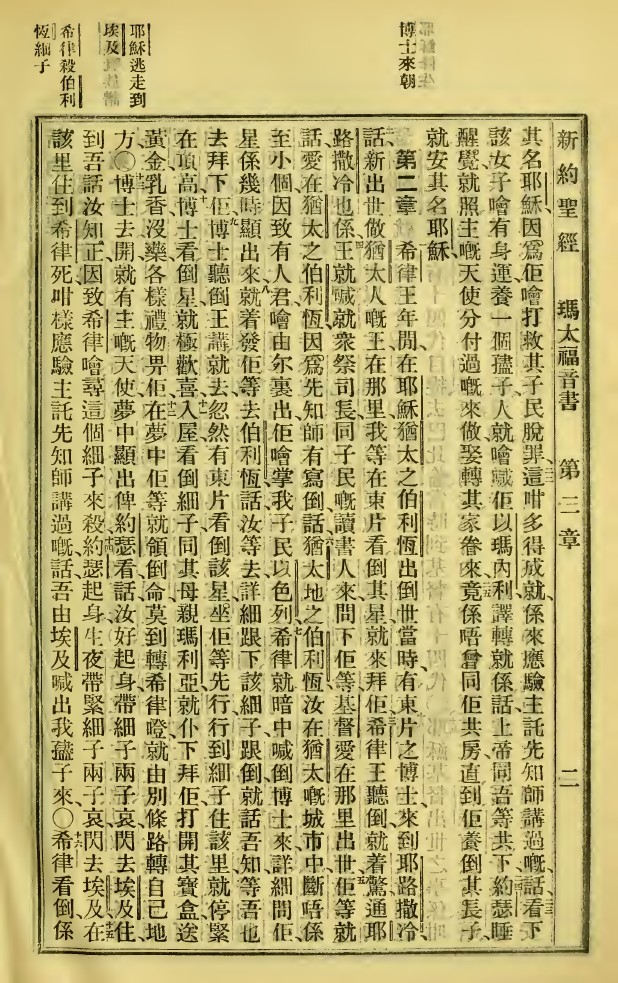 新約聖經 瑪太福音書 第二章 二
其名耶穌因爲佢噲打救其子民脫罪這咁多得成就係來應驗主託先知師講過嘅話看下
該女子噲有身運養一個孻子人就噲喊佢以瑪內利譯轉就係話上帝同吾等共下約瑟睡
醒覺就照主嘅天使分付過嘅來做娶轉其家眷來竟係唔曾同佢共房直到佢養倒其長子
就安其名耶穌
第二章 希律王年間在耶穌猶太之伯利恆出倒世當時有東片之博士來到耶路撒冷
話新出世做猶太人嘅王在那里我等在東片看倒其星就來拜佢希律王聽倒就着驚通耶
路撒冷也係王就喊就衆祭司長同子民嘅讀書人來問下佢等基督愛在那里出世佢等就
話愛在猶太之伯利恆因爲先知師有寫倒話猶太地之伯利恆汝在猶太嘅城市中斷唔係
至小個因致有人君噲由尔裏出佢噲掌我子民以色列希律就暗中喊倒博士來詳細問佢
星係幾時顯出來就着發佢等去伯利恆話汝等去詳細跟下該細子跟倒就話吾知等吾也
去拜下佢博士聽倒王講就去忽然有東片看倒該星坐佢等先行行到細子住該里就停緊
在頂高博士看倒星就極歡喜入屋看倒細子同其母親瑪利亞就仆下拜佢打開其寶盒送
黃金乳香沒藥各樣禮物畀佢在夢中佢等就領倒命莫到轉希律瞪就由別條路轉自己地
方〇博士去開就有主嘅天使夢中顯出俾約瑟看話汝好起身帶細子兩子哀閃去埃及住
到吾話汝知正因致希律噲尋這個細子來殺約瑟起身生夜帶緊細子兩子哀閃去埃及在
該里住到希律死咁樣應驗主託先知師講過嘅話吾由埃及喊出我孻子來〇希律看倒係
博士來朝
耶穌逃走到
埃及
希律殺伯利
恆細子